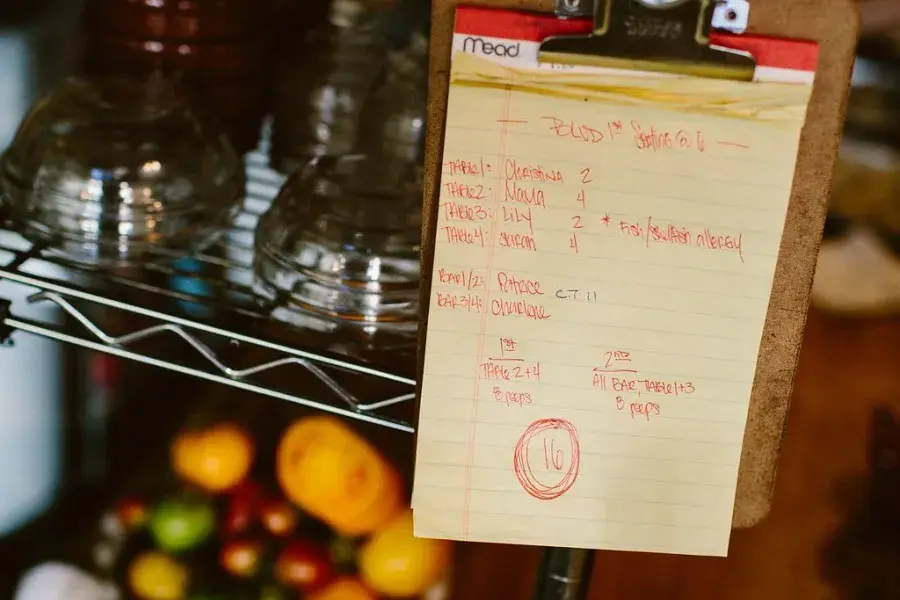 Mead
— BLUD 1st Seating @ 6 —
TABLE 1: Christina 2
TABLE 2: Mama 4
TABLE 3: Lily 2 * Fish/shellfish allergy
TABLE 4: Sarah 4
BAR 1/2: Patrice
BAR 3/4: Charlene
1st 2nd
TABLE 2+4 All BAR, TABLE 1+3
8 peeps 8 peeps
16